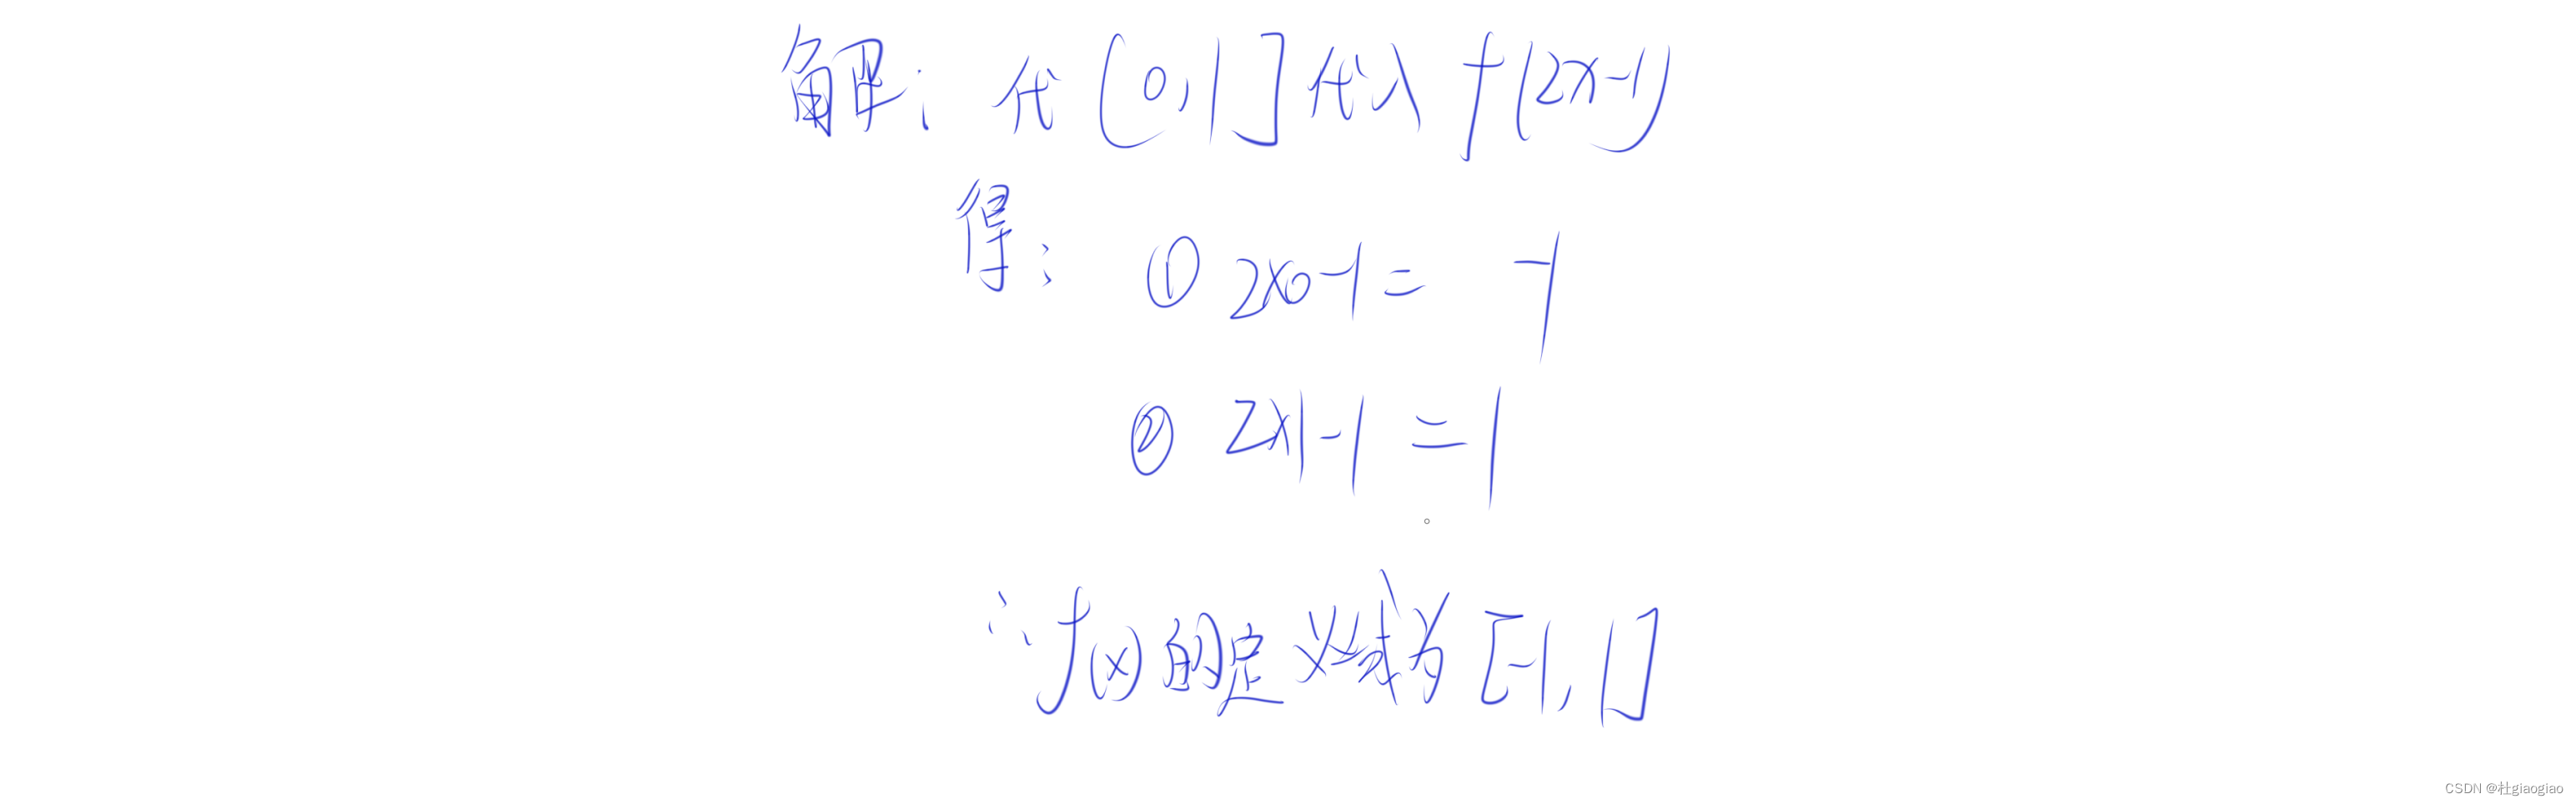 解：代[0,1]代入f(2x-1)
得：① 2×0-1= -1
② 2×1-1 = 1
∴f(x)的定义域为[-1,1]
CSDN @杜giaogiao